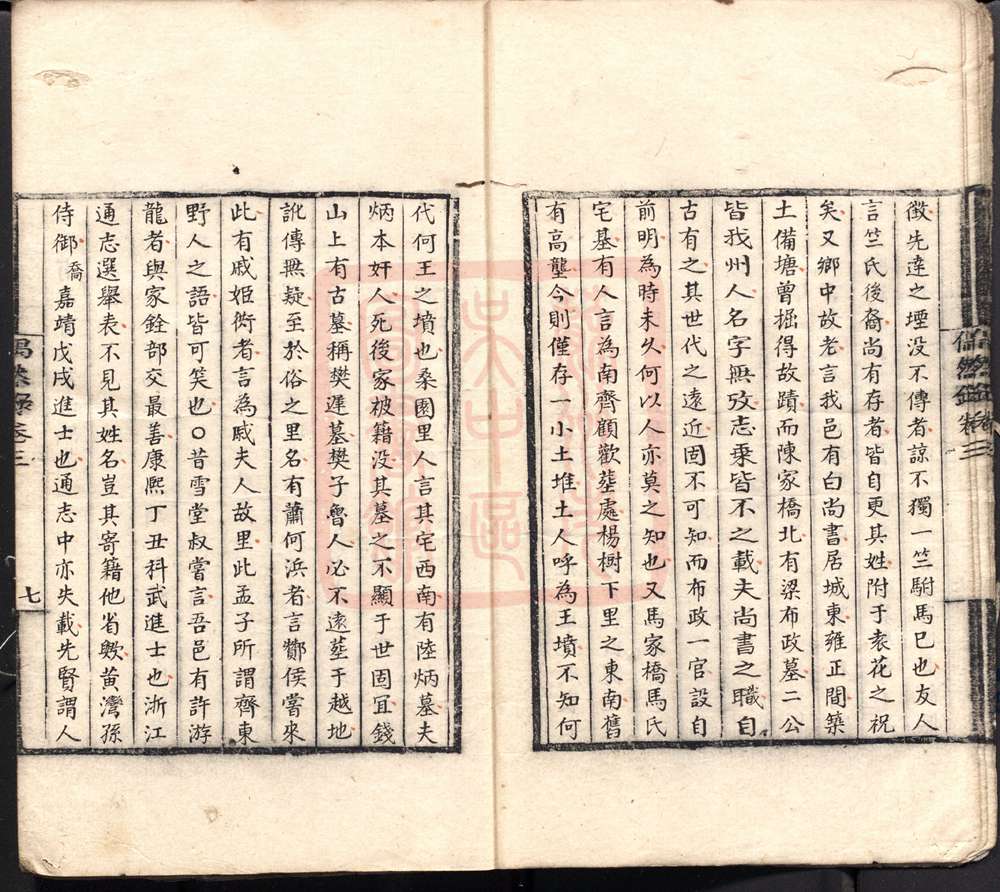 徵先達之堙没不傳者諒不獨一竺駙馬已也友人
言竺氏後裔尚有存者皆自更其姓附于袁花之祝
矣又鄉中故老言我邑有白尚書居城東雍正間築
土備塘曾掘得故蹟而陳家橋北有梁布政墓二公
皆我州人名字無攷志乗皆不之載夫尚書之職自
古有之其世代之遠近固不可知而布政一官設自
前明為時未久何以人亦莫之知也又馬家橋馬氏
宅基有人言為南齊顧歡塟處楊樹下里之東南舊
有高壟今則僅存一小土堆土人呼為王墳不知何
代何王之墳也桑園里人言其宅西南有陸炳墓夫
炳本奸人死後家被籍没其墓之不顯于世固冝錢
山上有古墓稱樊遲墓樊子魯人必不遠塟于越地
訛傳無疑至於俗之里名有蕭何浜者言酇侯嘗來
此有戚姬衖者言為戚夫人故里此孟子所謂齊東
野人之語皆可笑也○昔雪堂叔嘗言吾邑有許游
龍者與家銓部交最善康熙丁丑科武進士也浙江
通志選舉表不見其姓名豈其寄籍他省歟黃灣孫
侍御喬嘉靖戊戌進士也通志中亦失載先賢謂人
卷三
七